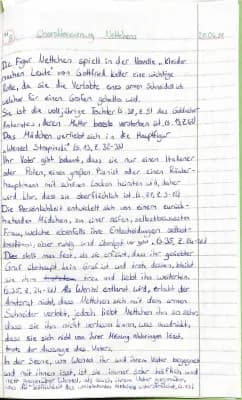 Charakterisierung Nettchens 20.06.
Die Figur Nettchen spielt in der Novelle „Kleider
machen Leute" von Gottfried Keller eine wichtige
Rolle, da sie die Verlobte eines armen Schneiders ist
welcher für einen Grafen gehalten wird.
Sie ist die volljährige Tochter des
Amtsrates, deren Mutter bereits verstorben ist
Das Mädchen verliebt sich in die Hauptfigur
„Wenzel Strapinski"
Ihr Vater gibt bekannt, dass sie nur einen Italiener
oder Polen, einen großen Pianist oder einen Räuber-
hauptmann mit schönen Locken heiraten will, daher
wird klar, dass sie oberflächlich ist
Die Persönlichkeit entwickelt sich von einem zurück-
haltenden Mädchen, zu einer reifen, selbstbewussten
Frau, welche ebenfalls ihre Entscheidungen selbst
bestimmt, aber ruhig und überlegt vor geht
Dies stellt man fest, als sie erfährt, dass ihr geliebter
Graf überhaupt kein Graf ist und trotz dessen, bleibt
sie ihm treu und liebt ihn weiterhin.
Als Wenzel entlarvt wird, erlaubt der
Amtsrat nicht, dass Nettchen sich mit dem armen
Schneider verlobt, jedoch liebt Nettchen ihn so sehr,
dass sie ihn nicht verlassen kann, was ausdrückt,
dass sie sich nicht von ihrer Meinung abbringen lässt,
trotz der Aussage des Vaters.
In der Szene, wo Wenzel ihr und ihrem Vater begegnet
und mit ihnen isst, ist sie immer sehr höflich und
nett gegenüber Wenzel, als auch ihrem Vater gegenüber,